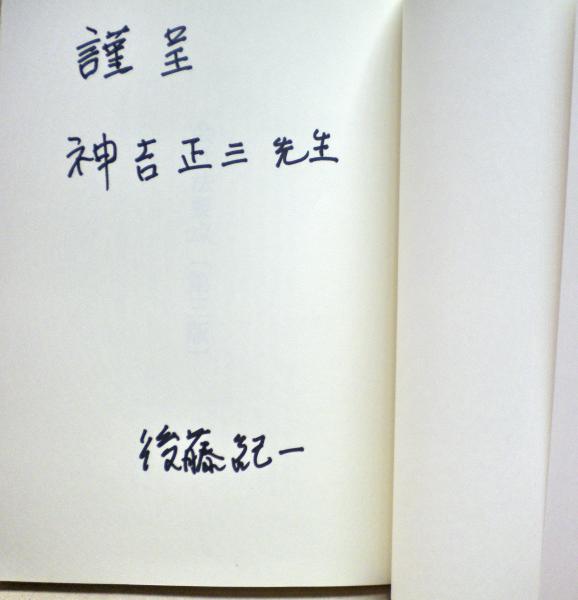 謹呈
神吉正三先生
後藤紀一